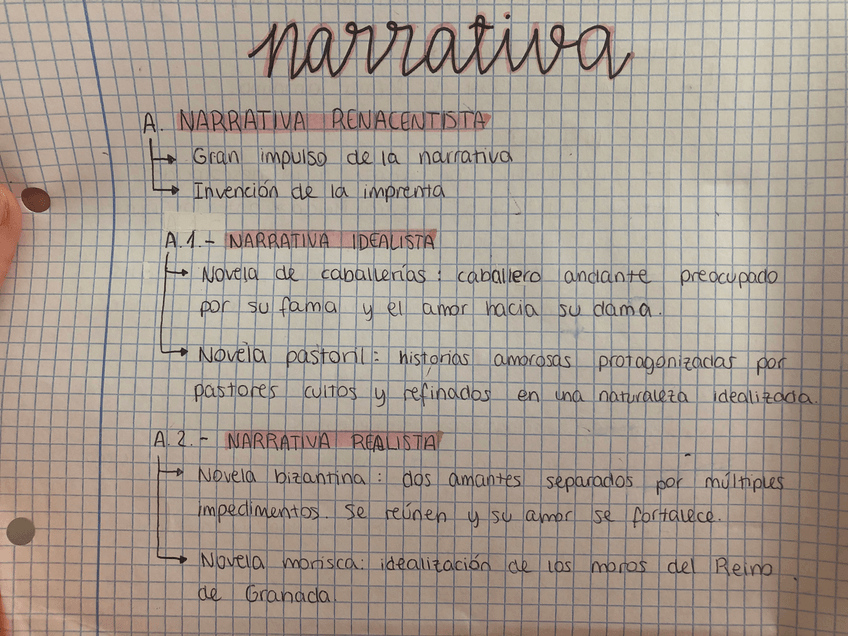 narrativa
A. NARRATIVA RENACENTISTA
Gran impulso de la narrativa
Invención de la imprenta
A.1.- NARRATIVA IDEALISTA
Novela de caballerías: caballero andante preocupado
por su fama y el amor hacia su dama.
Novela pastoril: historias amorosas protagonizadas por
pastores cultos y refinados en una naturaleza idealizada.
A.2.- NARRATIVA REALISTA
Novela bizantina: dos amantes separados por múltiples
impedimentos. Se reúnen y su amor se fortalece.
Novela morisca: idealización de los moros del Reino
de Granada.